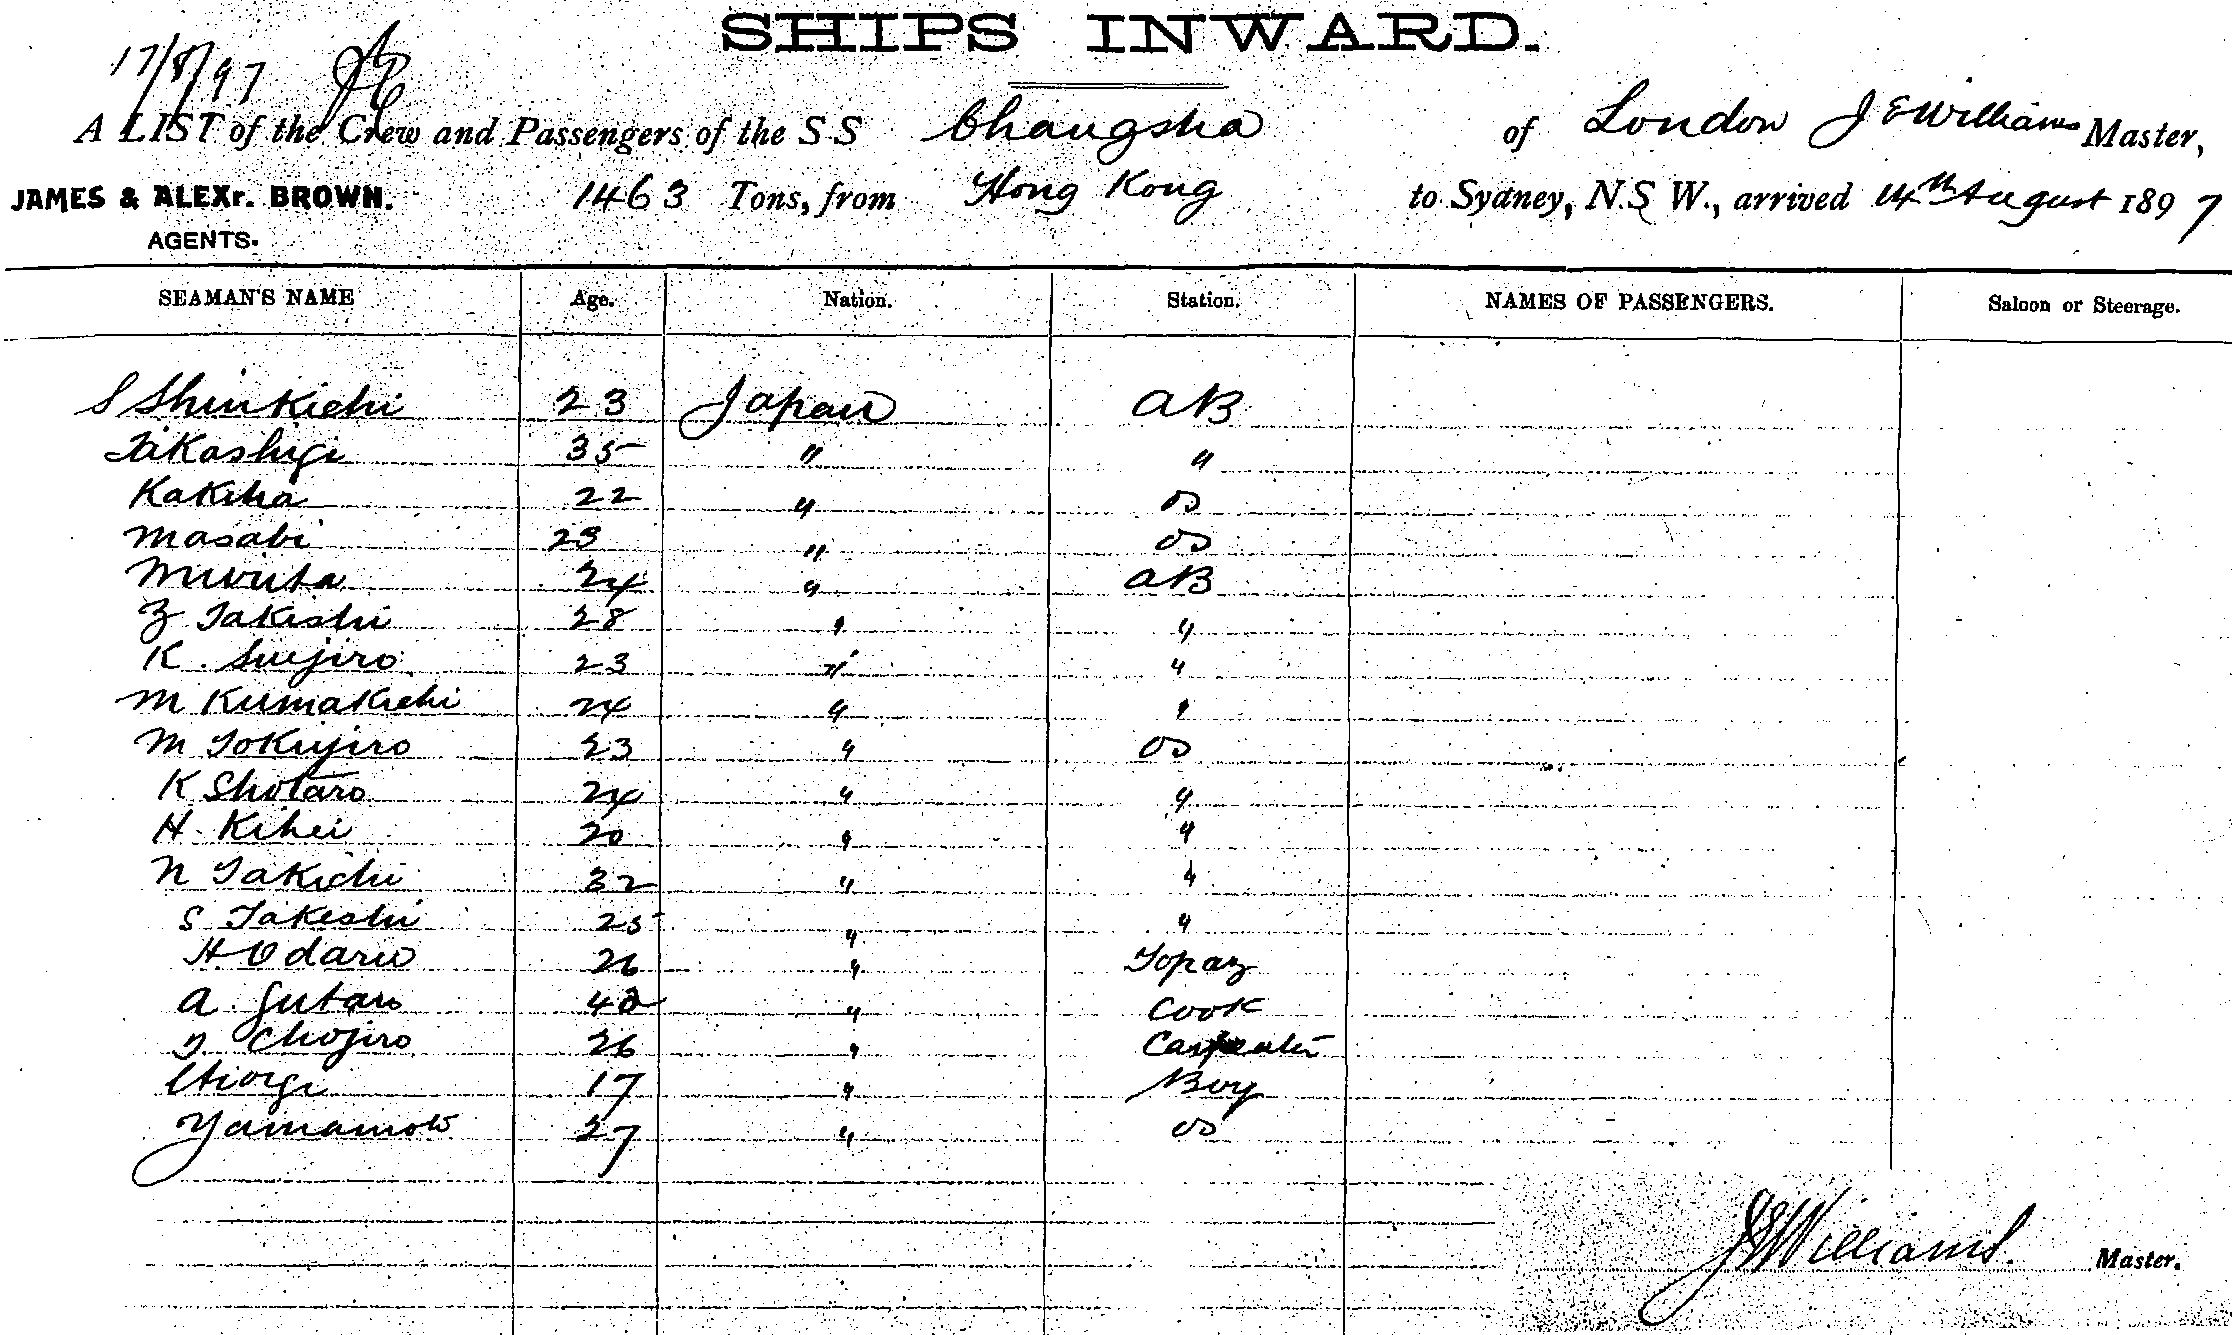 SHIPS INWARD.
17/8/97
A LIST of the Crew and Passengers of the S S Changsha of London J E Williams Master,
JAMES & ALEXr. BROWN. 1463 Tons, from Hong Kong to Sydney, N.S W., arrived 14th August 1897
AGENTS.
SEAMAN'S NAME Age. Nation. Station. NAMES OF PASSENGERS. Saloon or Steerage.
S Shinkichi 23 Japan AB
Takashige 35 " "
Kakiha 22 " OS
Masabi 23 " OS
24 " AB
Z Takeshi 28 " "
K. Suejiro 23 " "
M Kumakichi 24 " "
M Tokujiro 23 " OS
K Shotaro 24 " "
H. Kihei 20 " "
N Takichi 32 " "
S Takeshi 25 " "
H Odaru 26 " Topaz
A. Gutaro " Cook
T. Chojiro 26 " Carpenter
17 " Boy
Yamamoto 27 " OS
J E Williams. Master.